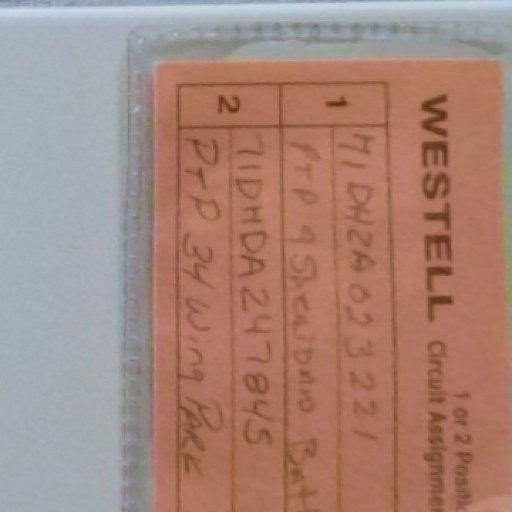 WESTELL 1 or 2 Positi
Circuit Assignme
1
71DHZA023221
PTP 9 Sheridan Batt
2
71DHDA247845
PTP 34 Wing PARK